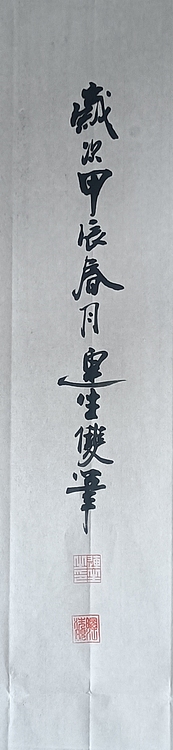 歲次甲辰春月運生雙筆